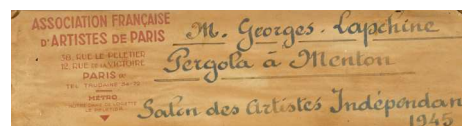 ASSOCIATION FRANÇAISE
D'ARTISTES DE PARIS
36, RUE LE PELETIER
12, RUE DE LA VICTOIRE
PARIS
METRO
M. Georges. Lapchine
Pergola à Menton
Salon des Artistes Indépendan
1945